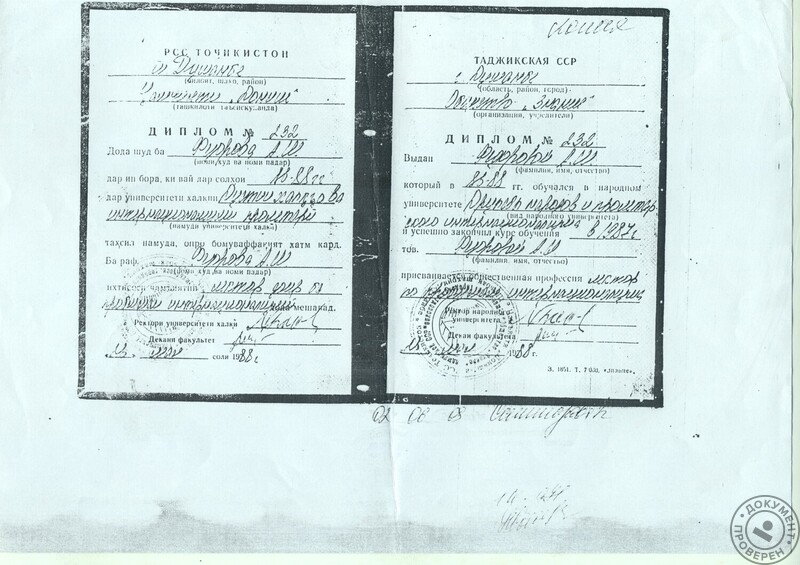 Копия
РСС ТОЧИКИСТОН
ш. Душанбе
(вилоят, шахр, район)
Чамъияти „Дониш"
(ташкилоти таъсискунанда)
ДИПЛОМ № 232
Дода шуд ба А.Ш
(ному худ ва номи падар)
дар ин бора, ки вай дар солхои 83-88 гг
дар университети халкии Дустии халкхо ва
интернационализми пролетарӣ
(намуди университети халкӣ)
таҳсил намуда, онро бомуваффакият хатм кард.
Ба раф. А.Ш
(номи худ ва номи падар)
ихтисоси чамъиятии лектор оид ба
интернационализми дода мешавад.
Ректори университети халкӣ
Декани факультет
май соли 1988 г
ТАДЖИКСКАЯ ССР
г. Душанбе
(область, район, город)
Общество „Знание"
(организации, учредители)
ДИПЛОМ № 232
Выдан А.Ш
(фамилия, имя, отчество)
который в 83-88 гг. обучался в народном
университете Дружбы народов и пролетар
ского интернационализма
(вид народного университета)
и успешно закончил курс обучения в 1987г
тов. А.Ш
(фамилия, имя, отчество)
присваивается общественная профессия лектор
по интернационализму
Ректор народного
университета
Декан факультета
май 1988 г.
З. 1851. Т. 7 000.
02 06 03
ДОКУМЕНТ
ПРОВЕРЕН